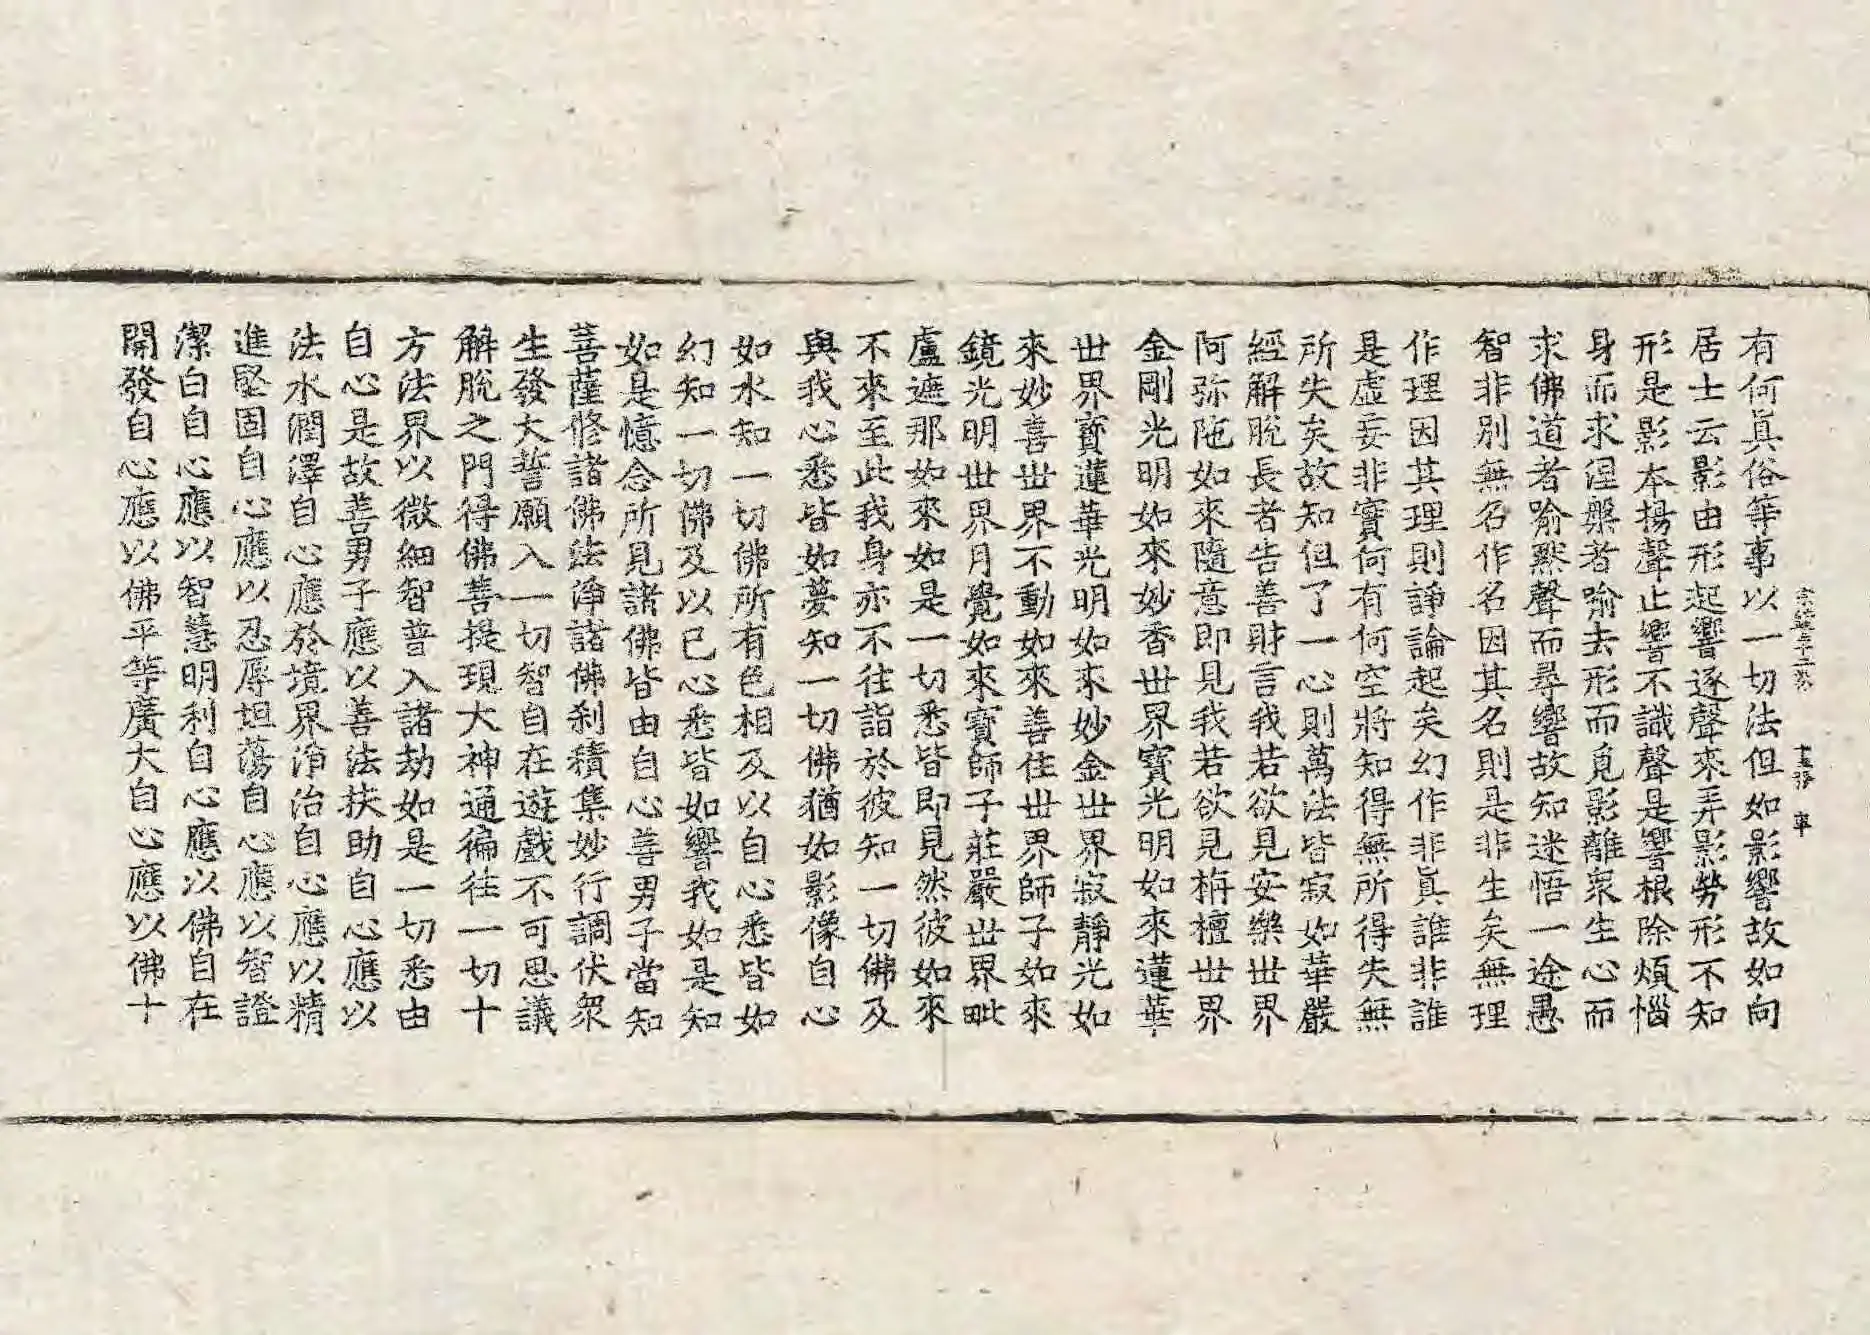 有何眞俗等事以一切法但如影響故如向
居士云影由形起響逐聲來弄影勞形不知
形是影本揚聲止響不識聲是響根除煩惱
身而求涅槃者喻去形而覓影離衆生心而
求佛道者喻默聲而尋響故知迷悟一途愚
智非別無名作名因其名則是非生矣無理
作理因其理則諍論起矣幻作非眞誰非誰
是虛妄非實何有何空將知得無所得失無
所失矣故知但了一心則萬法皆寂如華嚴
經解脫長者告善財言我若欲見安樂世界
阿弥陁如來隨意即見我若欲見栴檀世界
金剛光明如來妙香世界寶光明如來蓮華
世界寶蓮華光明如來妙金世界寂靜光如
來妙喜世界不動如來善住世界師子如來
鏡光明世界月覺如來寶師子莊嚴世界毗
盧遮那如來如是一切悉皆即見然彼如來
不來至此我身亦不往詣於彼知一切佛及
與我心悉皆如夢知一切佛猶如影像自心
如水知一切佛所有色相及以自心悉皆如
幻知一切佛及以已心悉皆如響我如是知
如是憶念所見諸佛皆由自心善男子當知
菩薩修諸佛法淨諸佛刹積集妙行調伏衆
生發大誓願入一切智自在遊戲不可思議
解脫之門得佛菩提現大神通徧往一切十
方法界以微細智普入諸劫如是一切悉由
自心是故善男子應以善法扶助自心應以
法水潤澤自心應於境界淨治自心應以精
進堅固自心應以忍辱坦蕩自心應以智證
潔白自心應以智慧明利自心應以佛自在
開發自心應以佛平等廣大自心應以佛十